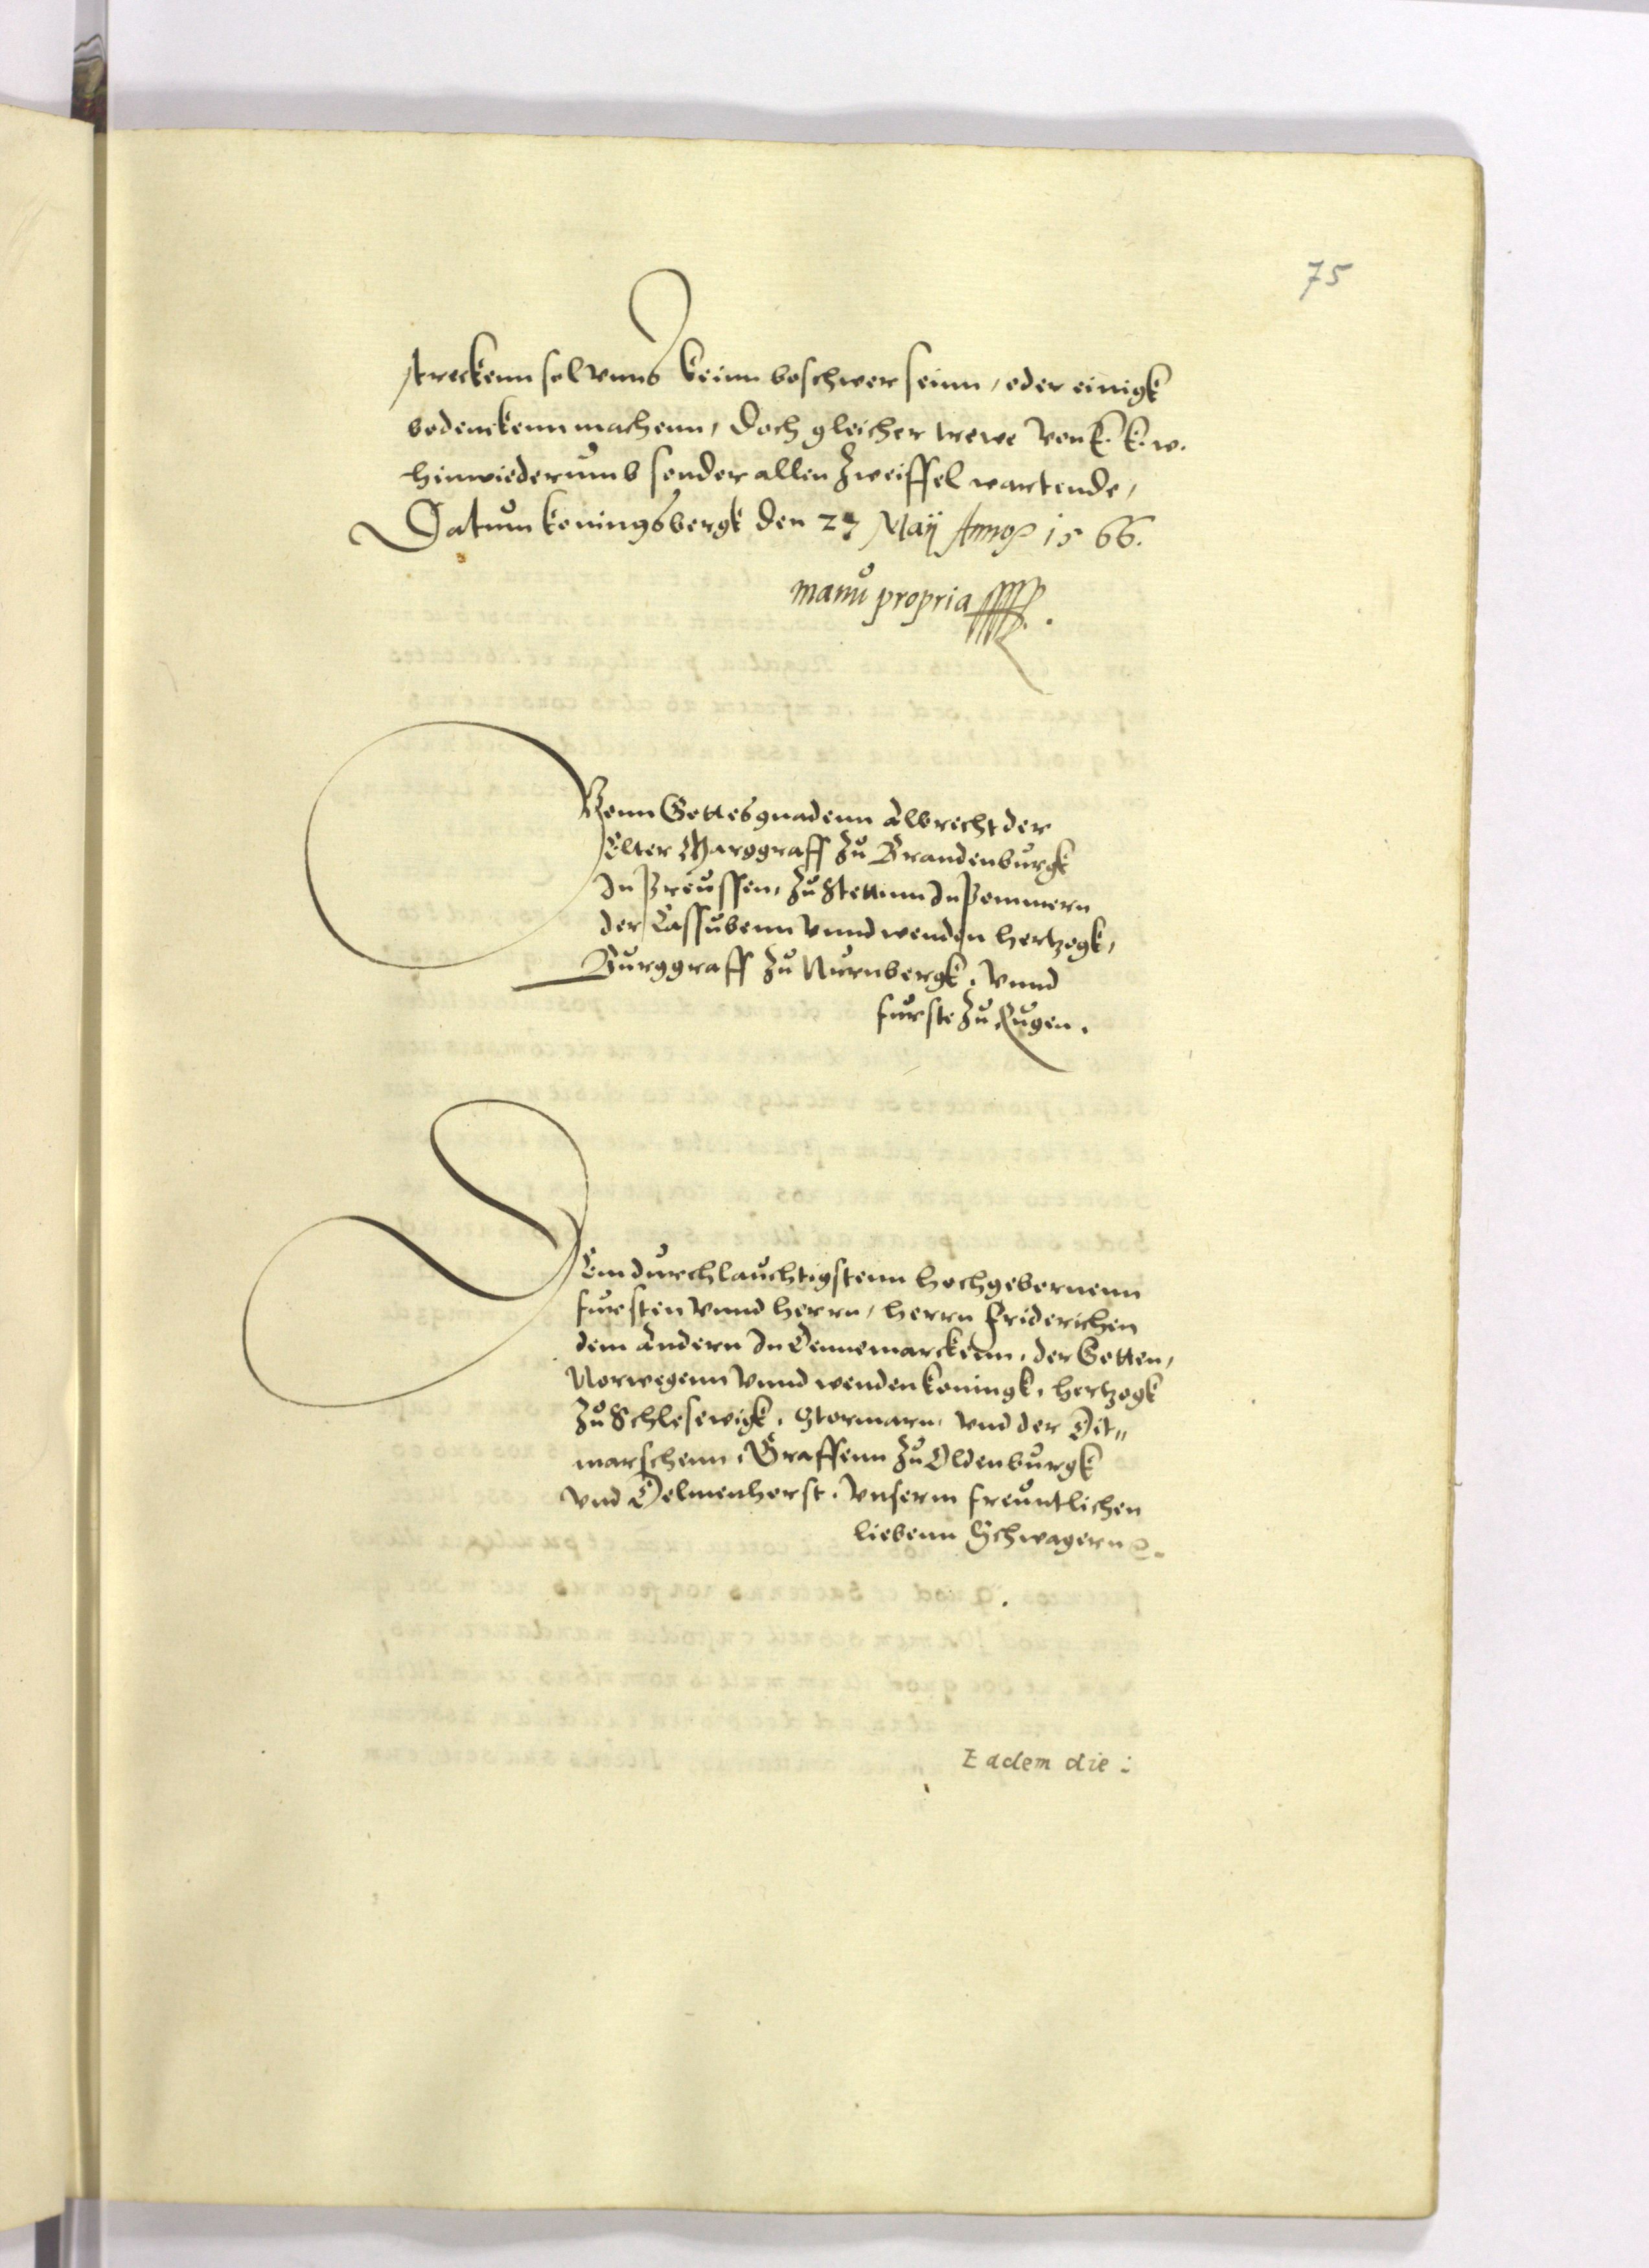 75
streckenn sol vnns keinn beschwer seinn, oder einigk
bedenckenn machenn, doch gleicher trewe von k. k. w.
hinwiederumb sonder allen zweiffel wartende,
Datum koningsbergk den 27 Maij Anno 1566.
manu propria
Vonn Gottes gnadenn Albrecht der
Elter Marggraff zu Brandenburgk
In Preussen, zu Stettinn In Pommern
der Cassubenn vnnd wenden hertzogk,
Burggraff zu Nurnbergk, vnnd
furste zu Rugen.
DEm durchlauchtigstenn hochgebornenn
fursten vnnd herrn, herrn Friderichen
dem andern In Dennemarckenn, der Gotten,
Norwegenn vnnd wenden koningk, hertzogk
zu Schlesewigk, Stormarn, vnd der Dit„
marschenn, Graffenn zu Oldenburgk
vnd Delmenhorst, vnserm freuntlichen
liebenn Schwagern
Eadem die: